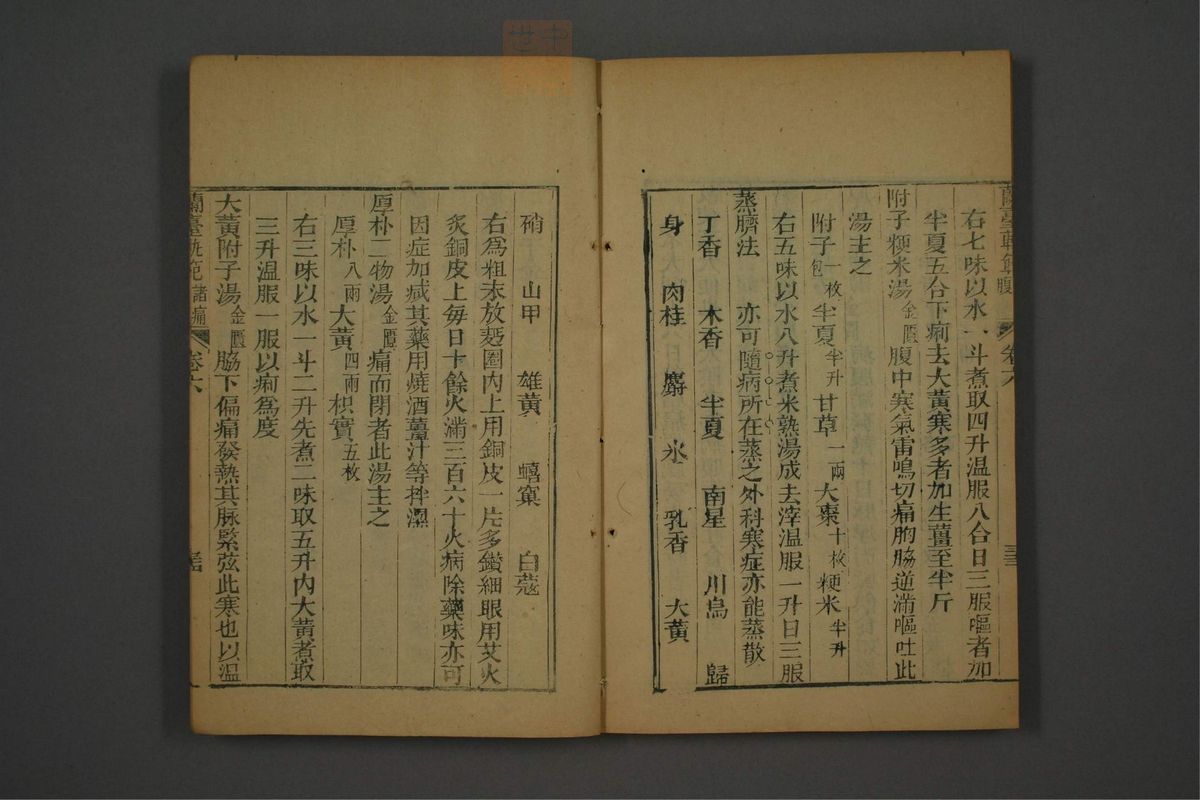 右七味以水一斗煮取四升温服八合日三服嘔者加
半夏五合下痢去大黃寒多者加生薑至半斤
附子粳米湯金匱腹中寒氣雷鳴切痛胸脇逆滿嘔吐此
湯主之
附子一枚包半夏半升甘草一兩大棗十枚粳米半升
右五味以水八升煮米熟湯成去滓温服一升日三服
蒸臍法 亦可隨病所在蒸之外科寒症亦能蒸散
丁香 木香 半夏 南星 川烏 歸
身 肉桂 麝 氷 乳香 大黃
硝 山甲 雄黃 蟢窠 白蔻
右爲粗末放麪圈內上用銅皮一片多鑚細眼用艾火
炙銅皮上每日十餘火滿三百六十火病除藥味亦可
因症加減其藥用燒酒薑汁等拌濕
厚朴二物湯金匱痛而閉者此湯主之
厚朴八兩大黃四兩枳實五枚
右三味以水一斗二升先煮二味取五升內大黃煮取
三升温服一服以痢爲度
大黃附子湯金匱脇下偏痛發熱其脉緊弦此寒也以温
蘭臺軌範 諸痛 卷六